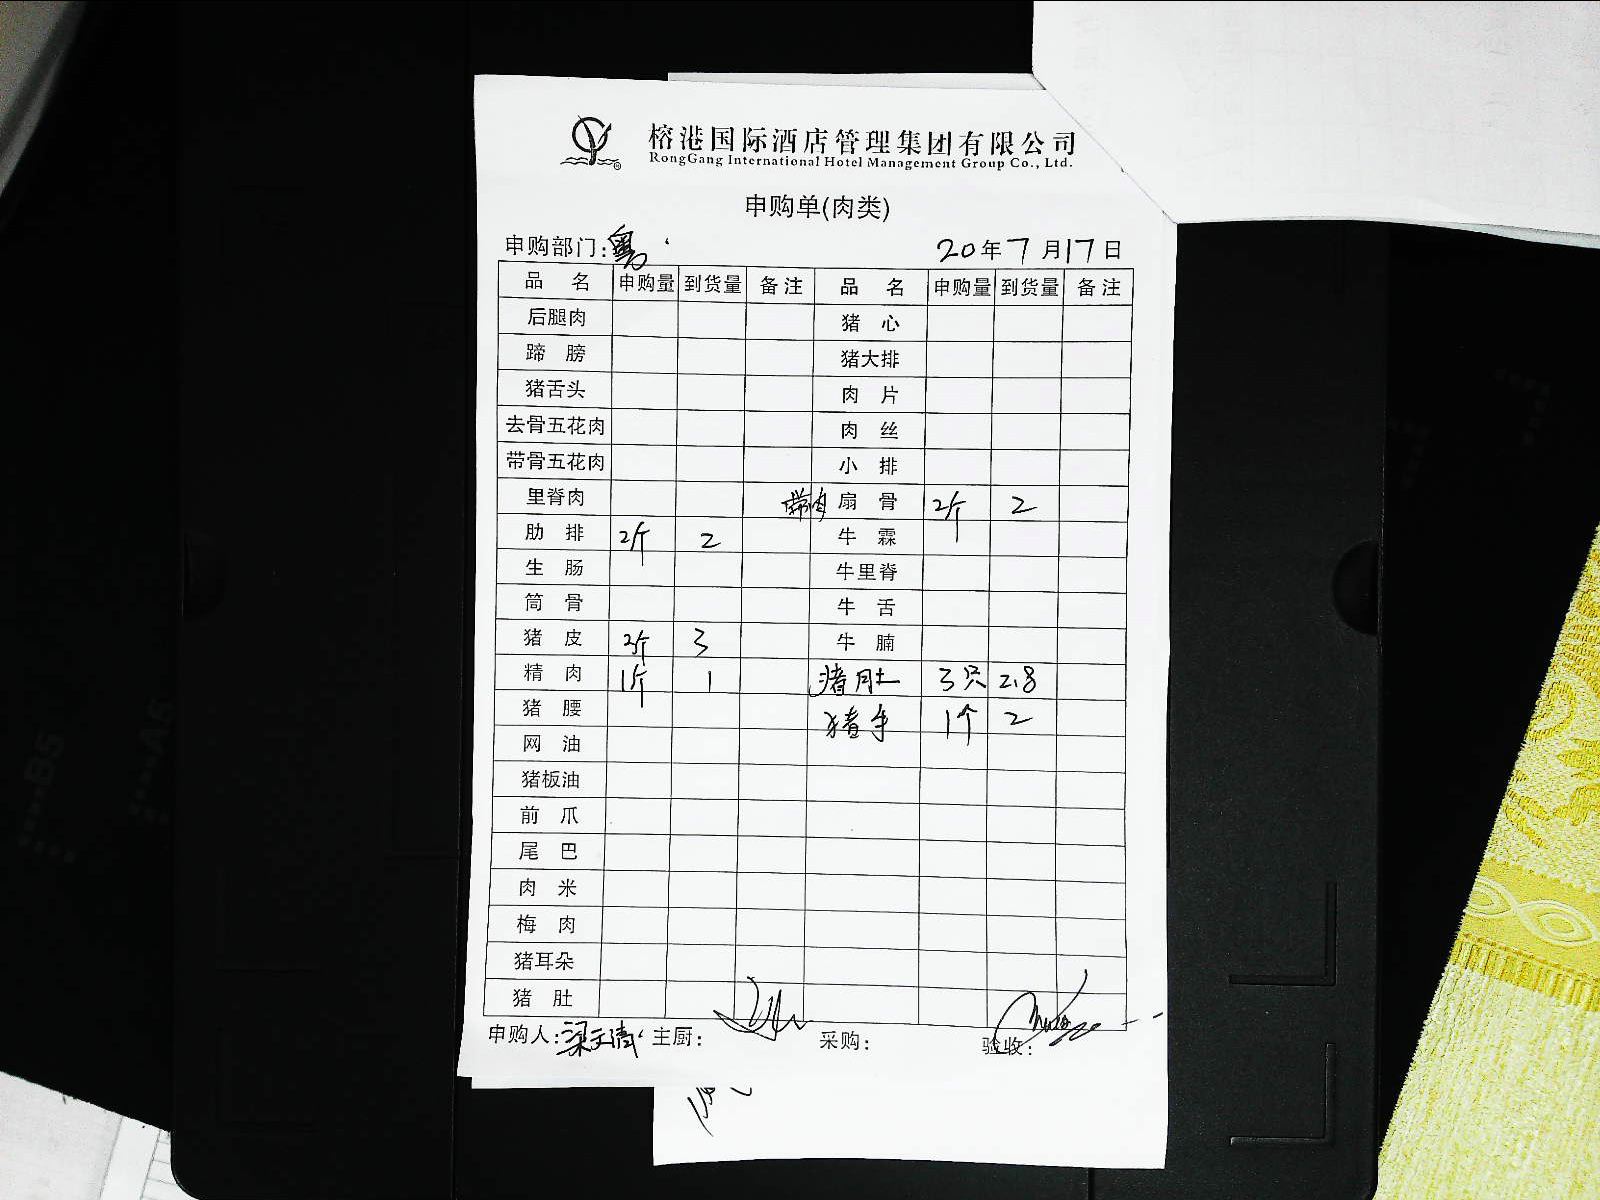 榕港国际酒店管理集团有限公司
RongGang International Hotel Management Group Co., Ltd.
申购单(肉类)
申购部门:粤 20年7月17日
品名 申购量 到货量 备注 品名 申购量 到货量 备注
后腿肉 猪心
蹄膀 猪大排
猪舌头 肉片
去骨五花肉 肉丝
带骨五花肉 小排
里脊肉 带肉 扇骨 2斤 2
肋排 2斤 2 牛霖
生肠 牛里脊
筒骨 牛舌
猪皮 2斤 3 牛腩
精肉 1斤 1 猪肚 3只 2.8
猪腰 猪手 1个 2
网油
猪板油
前爪
尾巴
肉米
梅肉
猪耳朵
猪肚
申购人:梁文清 主厨: 采购: 验收:
B5
A5